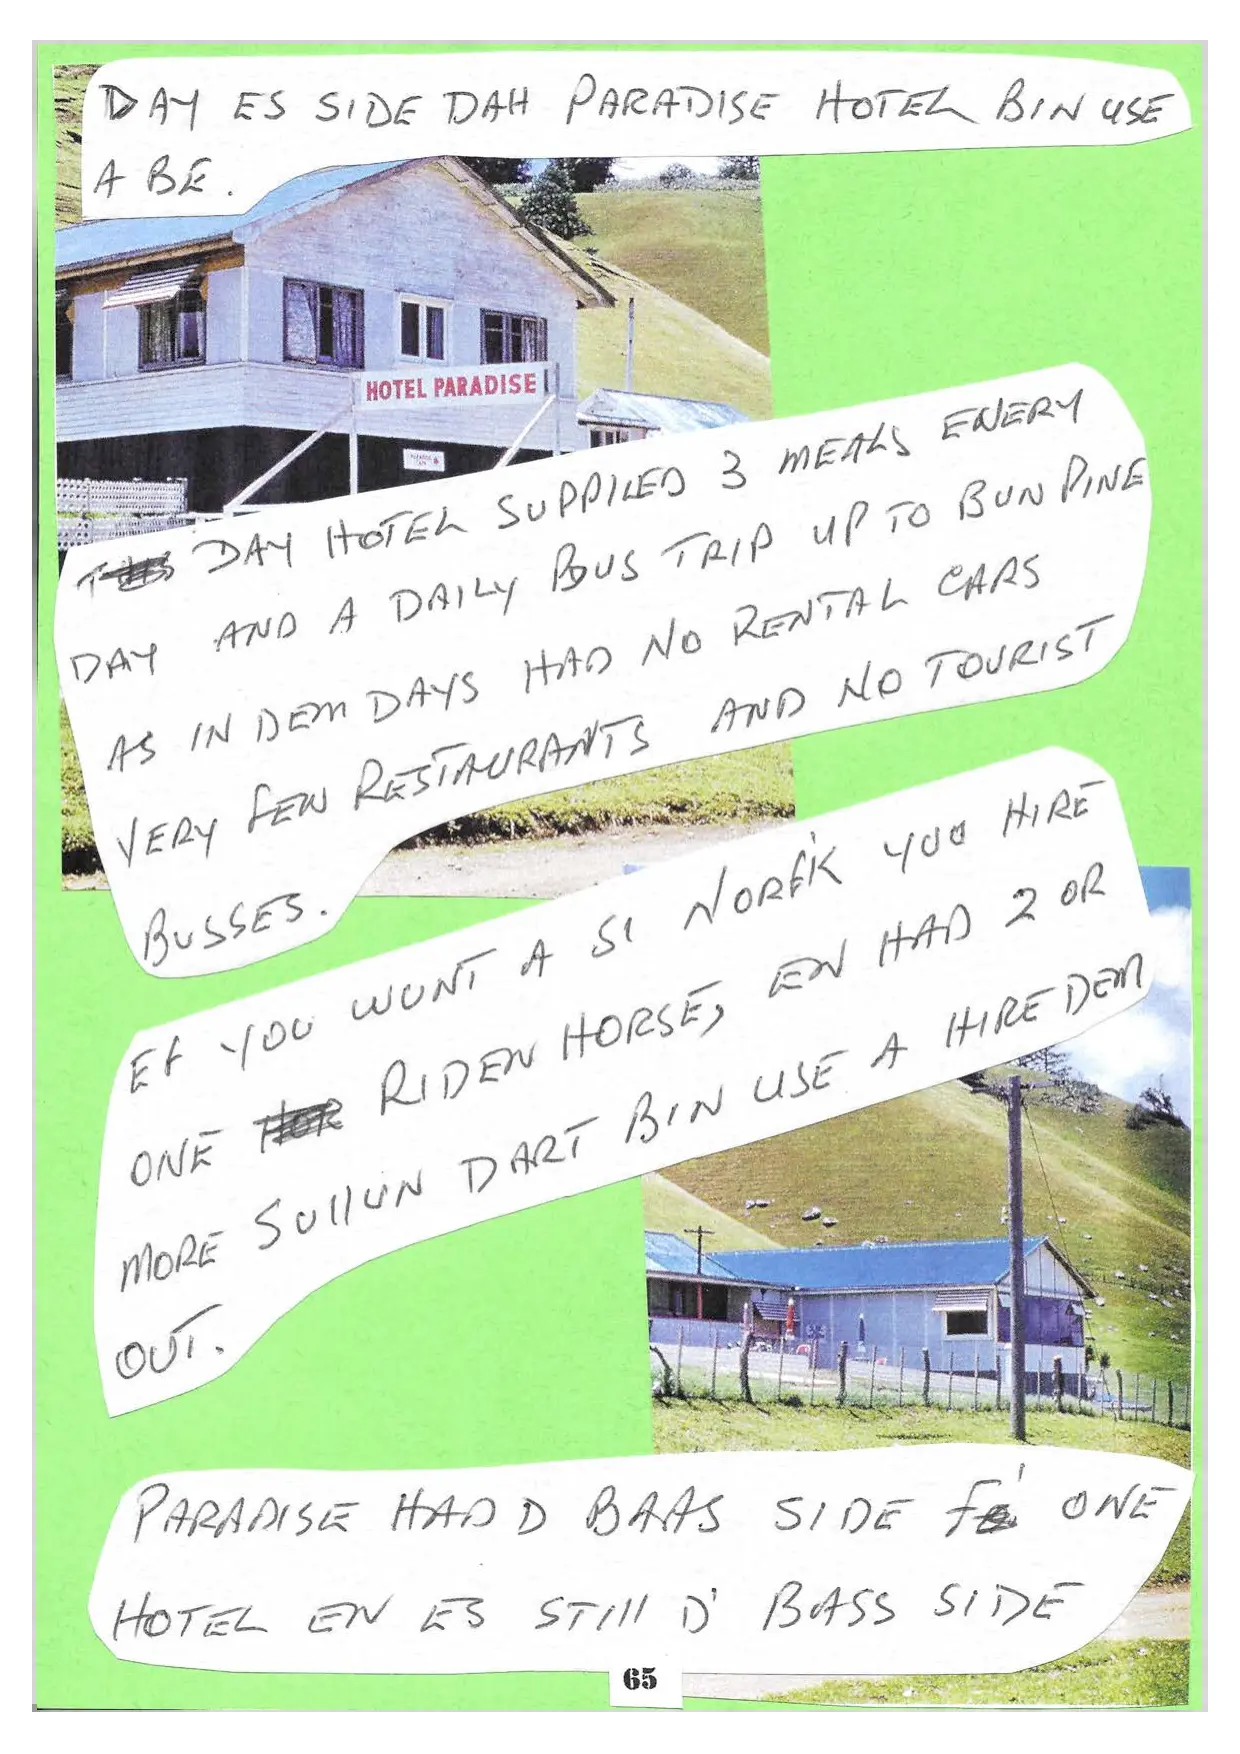 DAY ES SIDE DAH PARADISE HOTEL BIN USE
A BE.
HOTEL PARADISE
DAY HOTEL SUPPILED 3 MEALS EVERY
DAY AND A DAILY BUS TRIP UP TO BUN PINE
AS IN DEM DAYS HAD NO RENTAL CARS
VERY FEW RESTAURANTS AND NO TOURIST
BUSSES.
EF YOU WUNT A SI NORF'K YUU HIRE
ONE RIDEN HORSE, EN HAD 2 OR
MORE SULLUN DART BIN USE A HIRE DEM
OUT.
PARADISE HAD D BAAS SIDE F' ONE
HOTEL EN ES STILL D' BASS SIDE
65